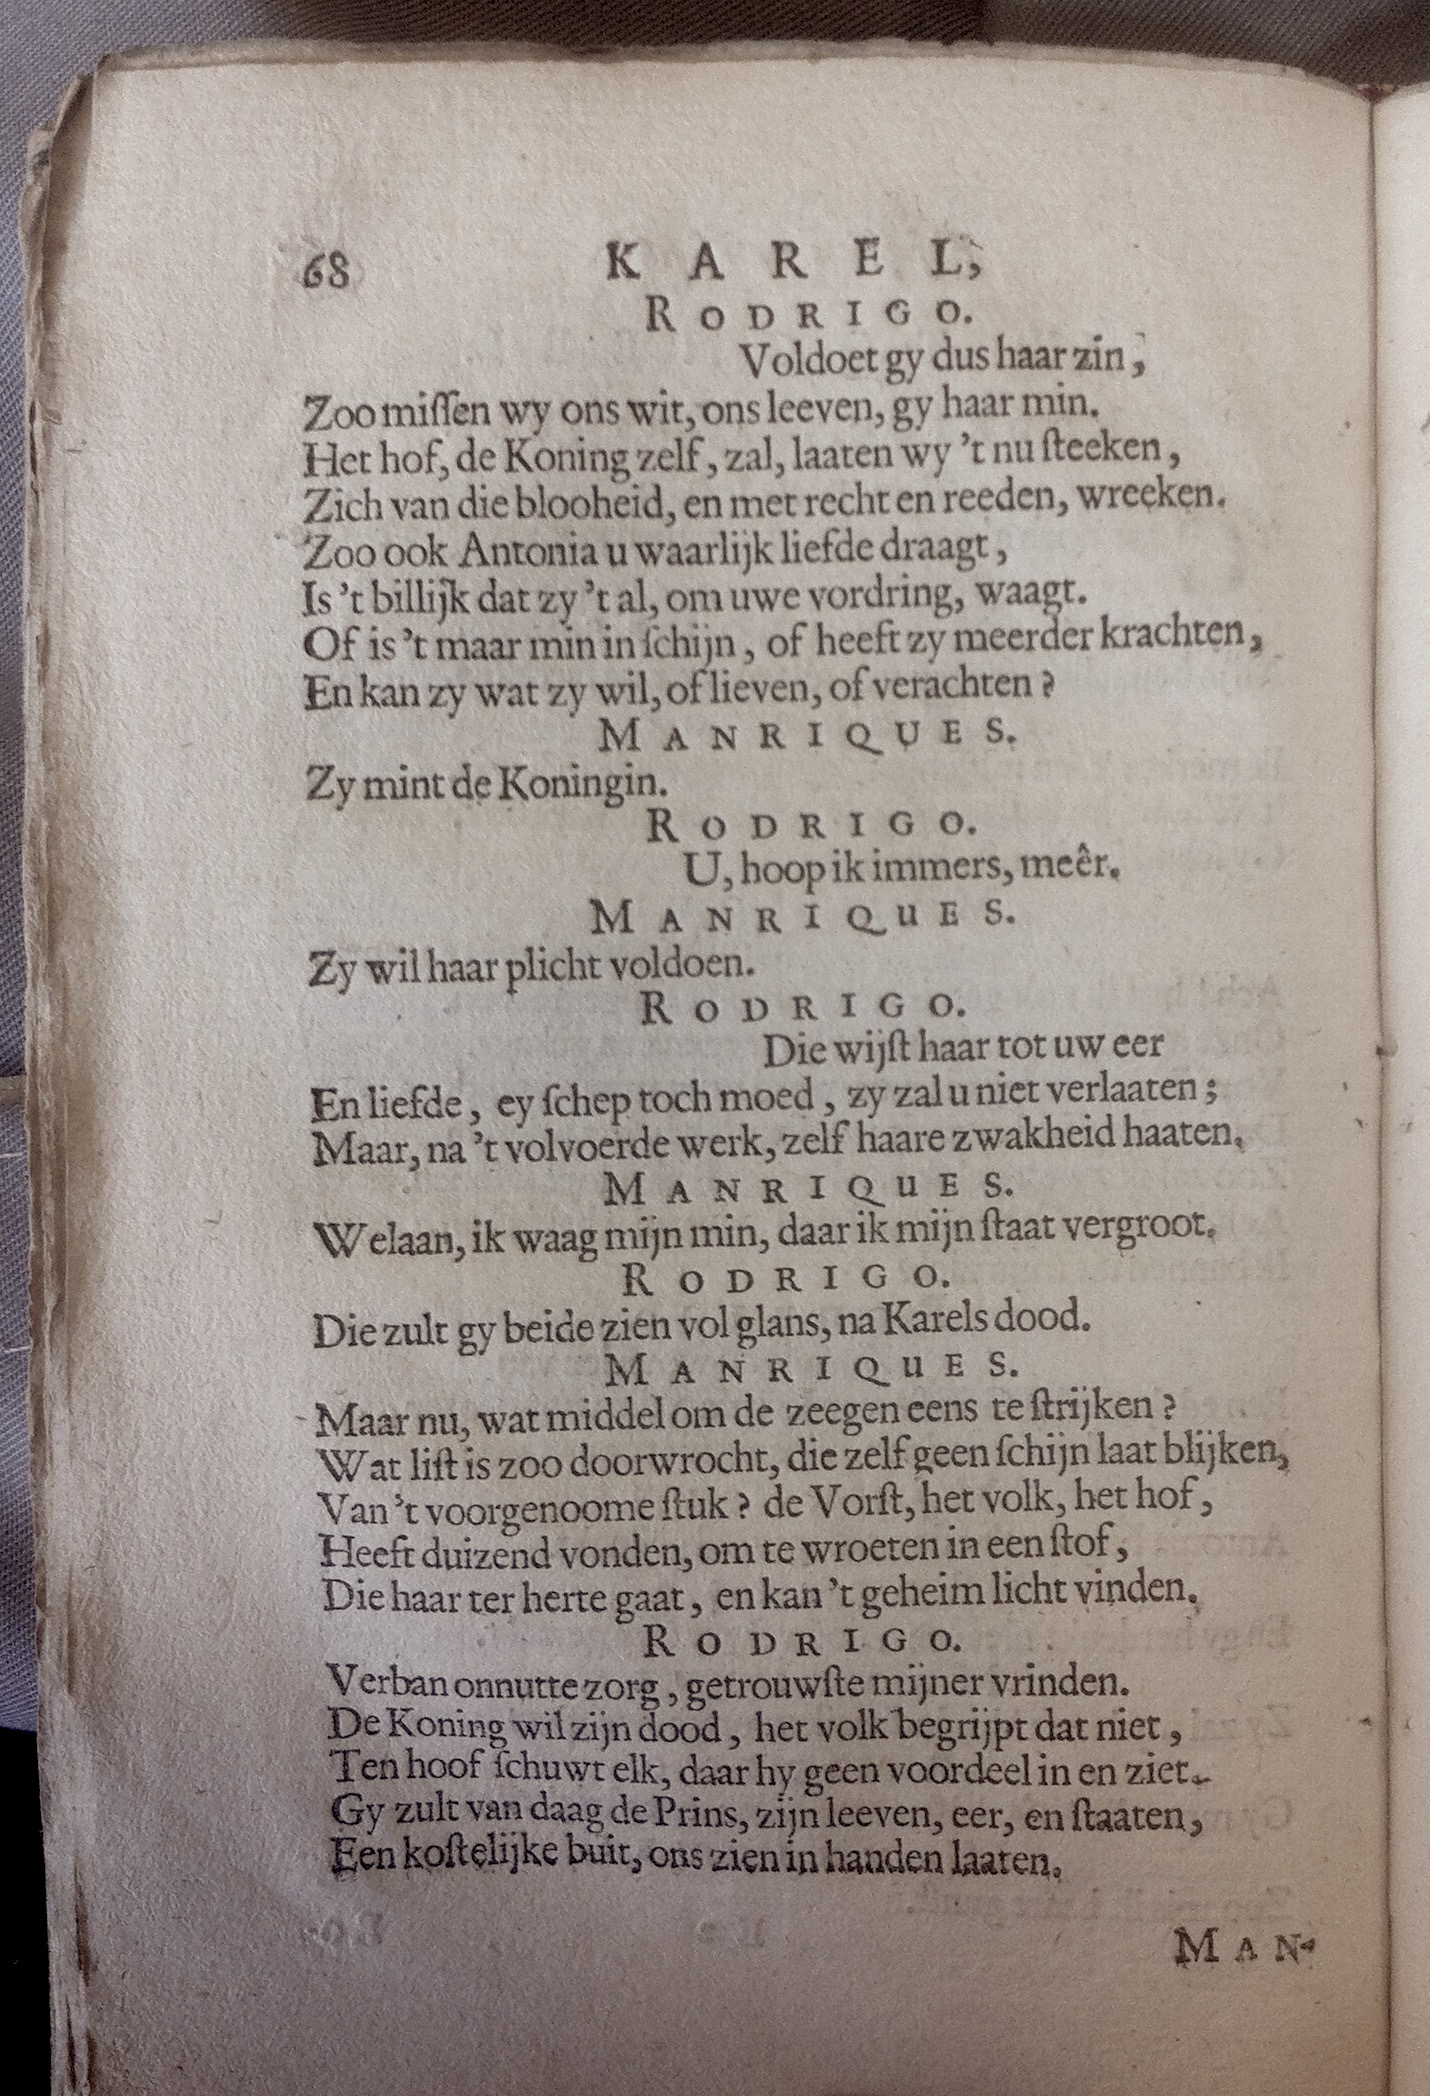 68 KAREL,
RODRIGO.
Voldoet gy dus haar zin,
Zoo miſſen wy ons wit, ons leeven, gy haar min.
Het hof, de Koning zelf, zal, laaten wy 't nu ſteeken,
Zich van die blooheid, en met recht en reeden, wreeken.
Zoo ook Antonia u waarlijk liefde draagt,
Is 't billijk dat zy 't al, om uwe vordring, waagt.
Of is 't maar min in ſchijn, of heeft zy meerder krachten,
En kan zy wat zy wil, of lieven, of verachten?
MANRIQUES.
Zy mint de Koningin.
RODRIGO.
U, hoop ik immers, meêr.
MANRIQUES.
Zy wil haar plicht voldoen.
RODRIGO.
Die wijſt haar tot uw eer
En liefde, ey ſchep toch moed, zy zal u niet verlaaten;
Maar, na 't volvoerde werk, zelf haare zwakheid haaten.
MANRIQUES.
Welaan, ik waag mijn min, daar ik mijn ſtaat vergroot.
RODRIGO.
Die zult gy beide zien vol glans, na Karels dood.
MANRIQUES.
Maar nu, wat middel om de zeegen eens te ſtrijken?
Wat liſt is zoo doorwrocht, die zelf geen ſchijn laat blijken,
Van 't voorgenoome ſtuk? de Vorſt, het volk, het hof,
Heeft duizend vonden, om te wroeten in een ſtof,
Die haar ter herte gaat, en kan 't geheim licht vinden.
RODRIGO.
Verban onnutte zorg, getrouwſte mijner vrinden.
De Koning wil zijn dood, het volk begrijpt dat niet,
Ten hoof ſchuwt elk, daar hy geen voordeel in en ziet.
Gy zult van daag de Prins, zijn leeven, eer, en ſtaaten,
Een koſtelijke buit, ons zien in handen laaten.
MAN-